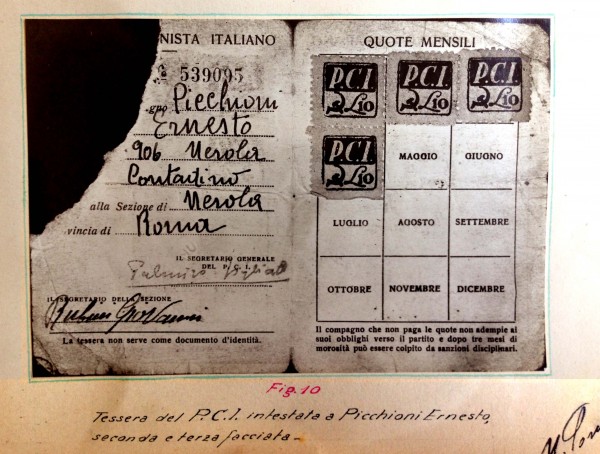 NISTA ITALIANO
No 539095
gno Picchioni
Ernesto
906 Nerola
Contadino
alla Sezione di Nerola
vincia di Roma
IL SEGRETARIO GENERALE
DEL P. C. I.
Palmiro Togliatti
IL SEGRETARIO DELLA SEZIONE
Giovanni
La tessera non serve come documento d'identità.
QUOTE MENSILI
P.C.I. P.C.I. P.C.I.
L10 L10 L10
P.C.I.
L10
MAGGIO GIUGNO
LUGLIO AGOSTO SETTEMBRE
OTTOBRE NOVEMBRE DICEMBRE
Il compagno che non paga le quote non adempie ai
suoi obblighi verso il partito e dopo tre mesi di
morosità può essere colpito da sanzioni disciplinari.
Fig. 10
Tessera del P.C.I. intestata a Picchioni Ernesto,
seconda e terza facciata-